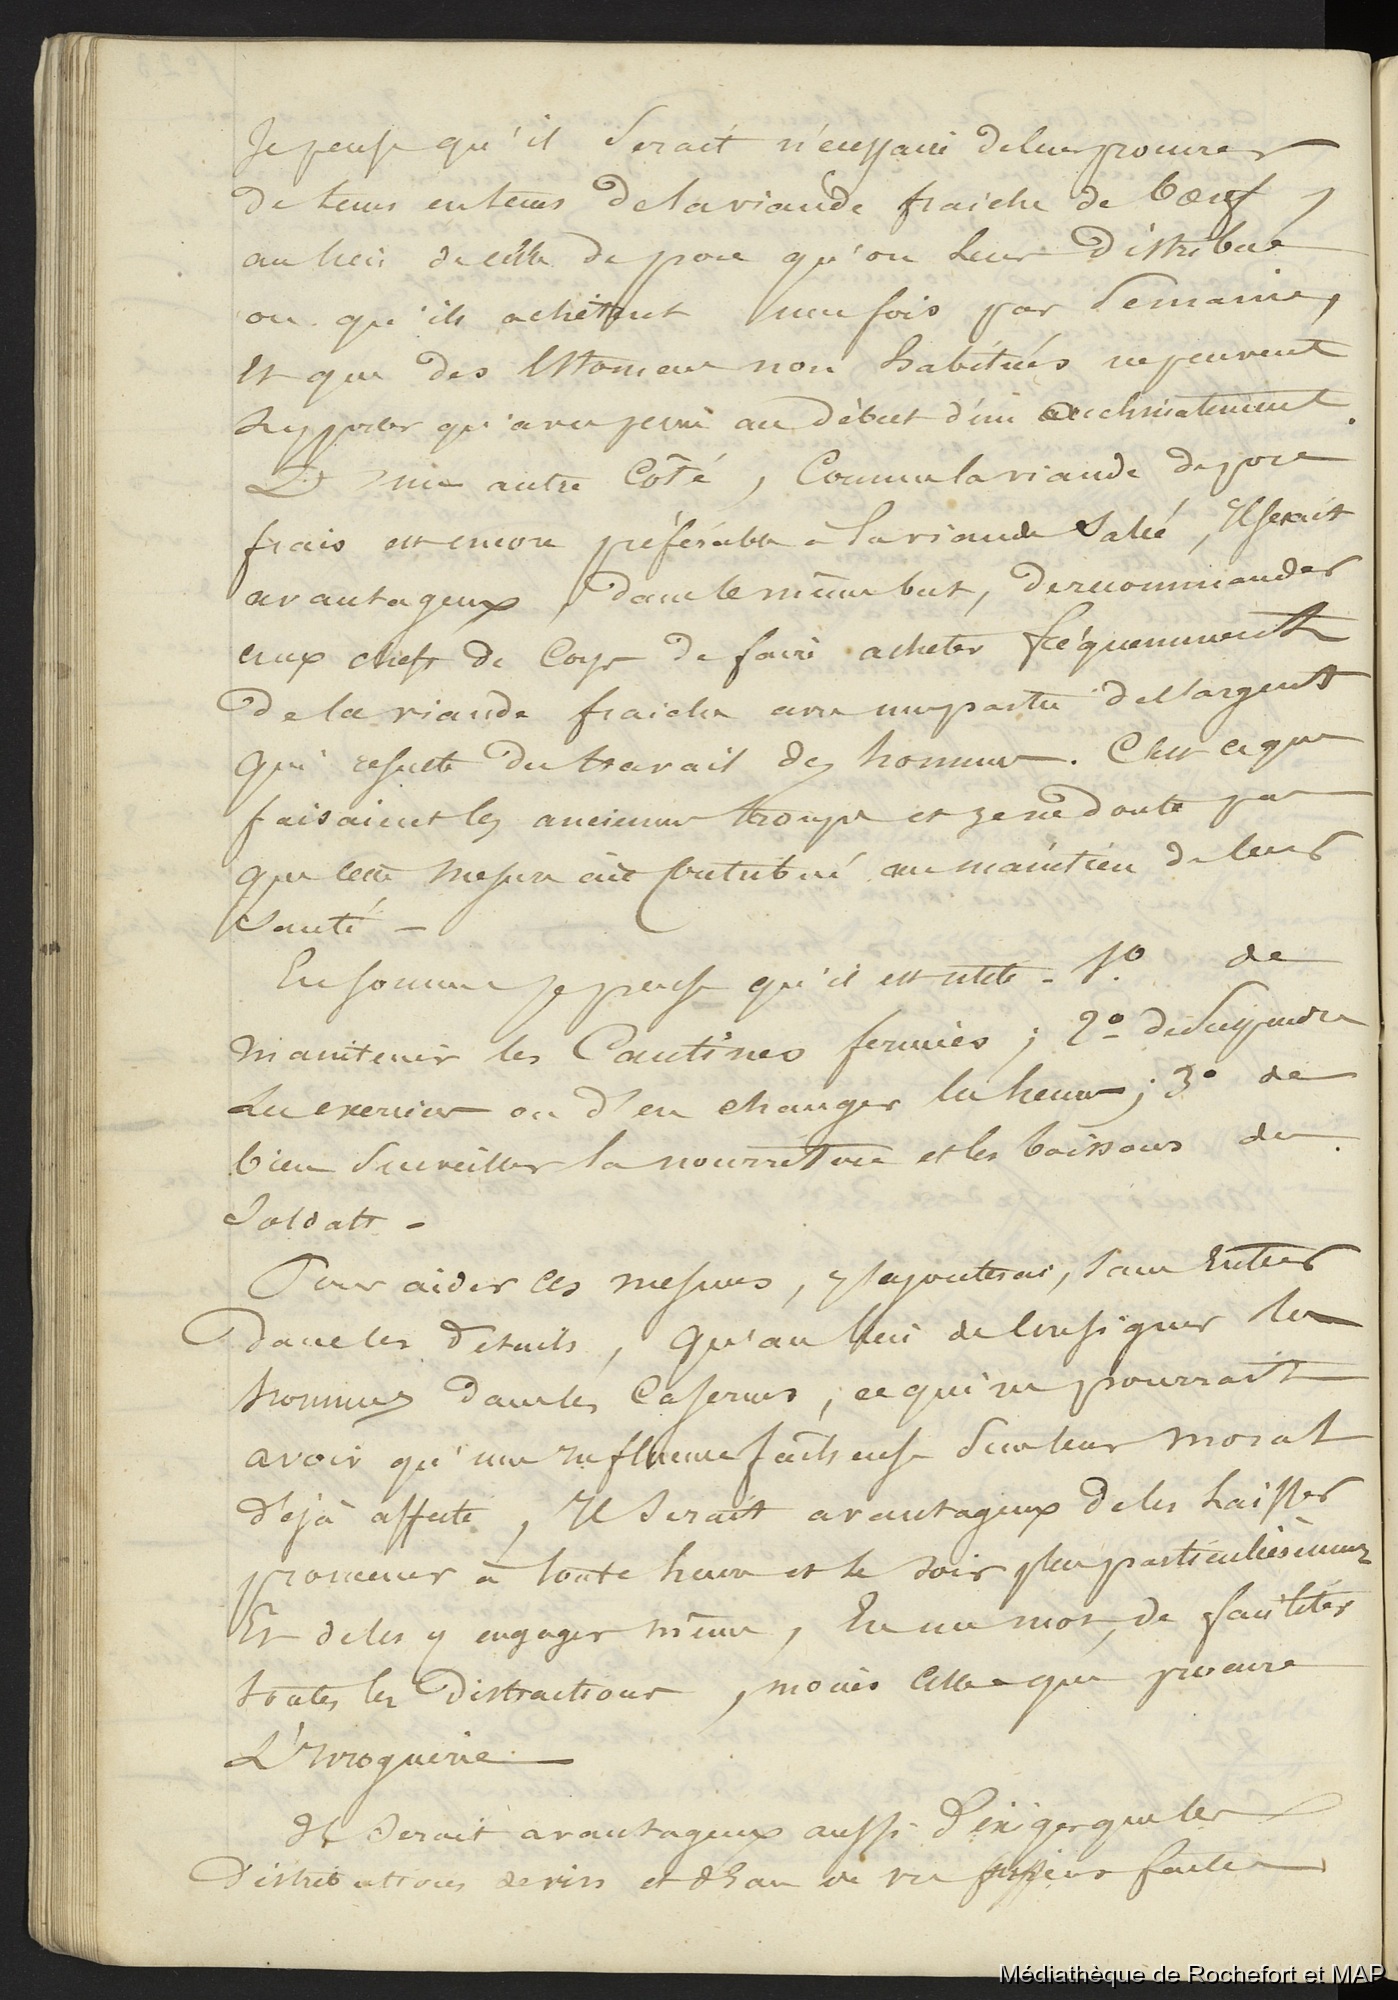 Je pense qu'il serait nécessaire de leur procurer
de tems en tems de la viande fraiche de bœuf,
au lieu de celle de porc qu'on leur distribue
ou qu'ils achètent une fois par semaine,
et que des estomacs non habitués ne peuvent
supporter qu'avec peine au début d'un acclimatement.
D'une autre côté, comme la viande de porc
frais est encore préférable à la viande salée, Il serait
avantageux, dans le même but, de recommander
aux chefs de corps de faire acheter fréquemment
de la viande fraiche avec une partie de l'argent
qui résulte du travail des hommes. C'est ce que
faisaient les anciennes troupes et je ne doute pas
que cette mesure ait contribué au maintien de leur
santé -
En somme je pense qu'il est utile - 1º. de
maintenir les Cantines fermées ; 2º de suspendre
les exercices ou d'en changer les heures ; 3º de
bien surveiller la nourriture et les boissons des
soldats -
Pour aider ces mesures, j'ajouterai, sans entrer
dans les détails, qu'au lieu de consigner les
hommes dans les casernes, ce qui ne pourrait
avoir qu'une influence fâcheuse sur leur moral
déjà affecté, Il serait avantageux de les laisser
promener à toute heure et le soir plus particulièrement
Et de les y engager même, En un mot, de faciliter
toutes les distractions, moins celle que procure
L'Ivrognerie.
Il serait avantageux aussi d'exiger que les
distributions de vin et d'eau de vie fussent faites
Médiathèque de Rochefort et MAP